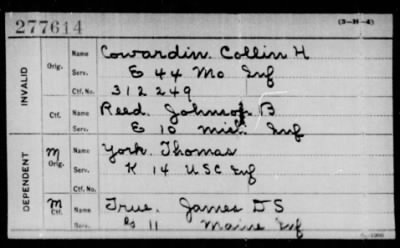 277614
(3-H-4)
INVALID
Orig.
Name
Cowardin. Collin H
Serv.
E 44 Mo Inf
Ctf. No.
312249
Ctf.
Name
Reed. B
Serv.
E 10 Mich. Inf
DEPENDENT
M
Orig.
Name
York. Thomas
Serv.
K 14 USC Inf
Ctf. No.
M
Ctf.
Name
True. James D S
Serv.
11 Maine Inf